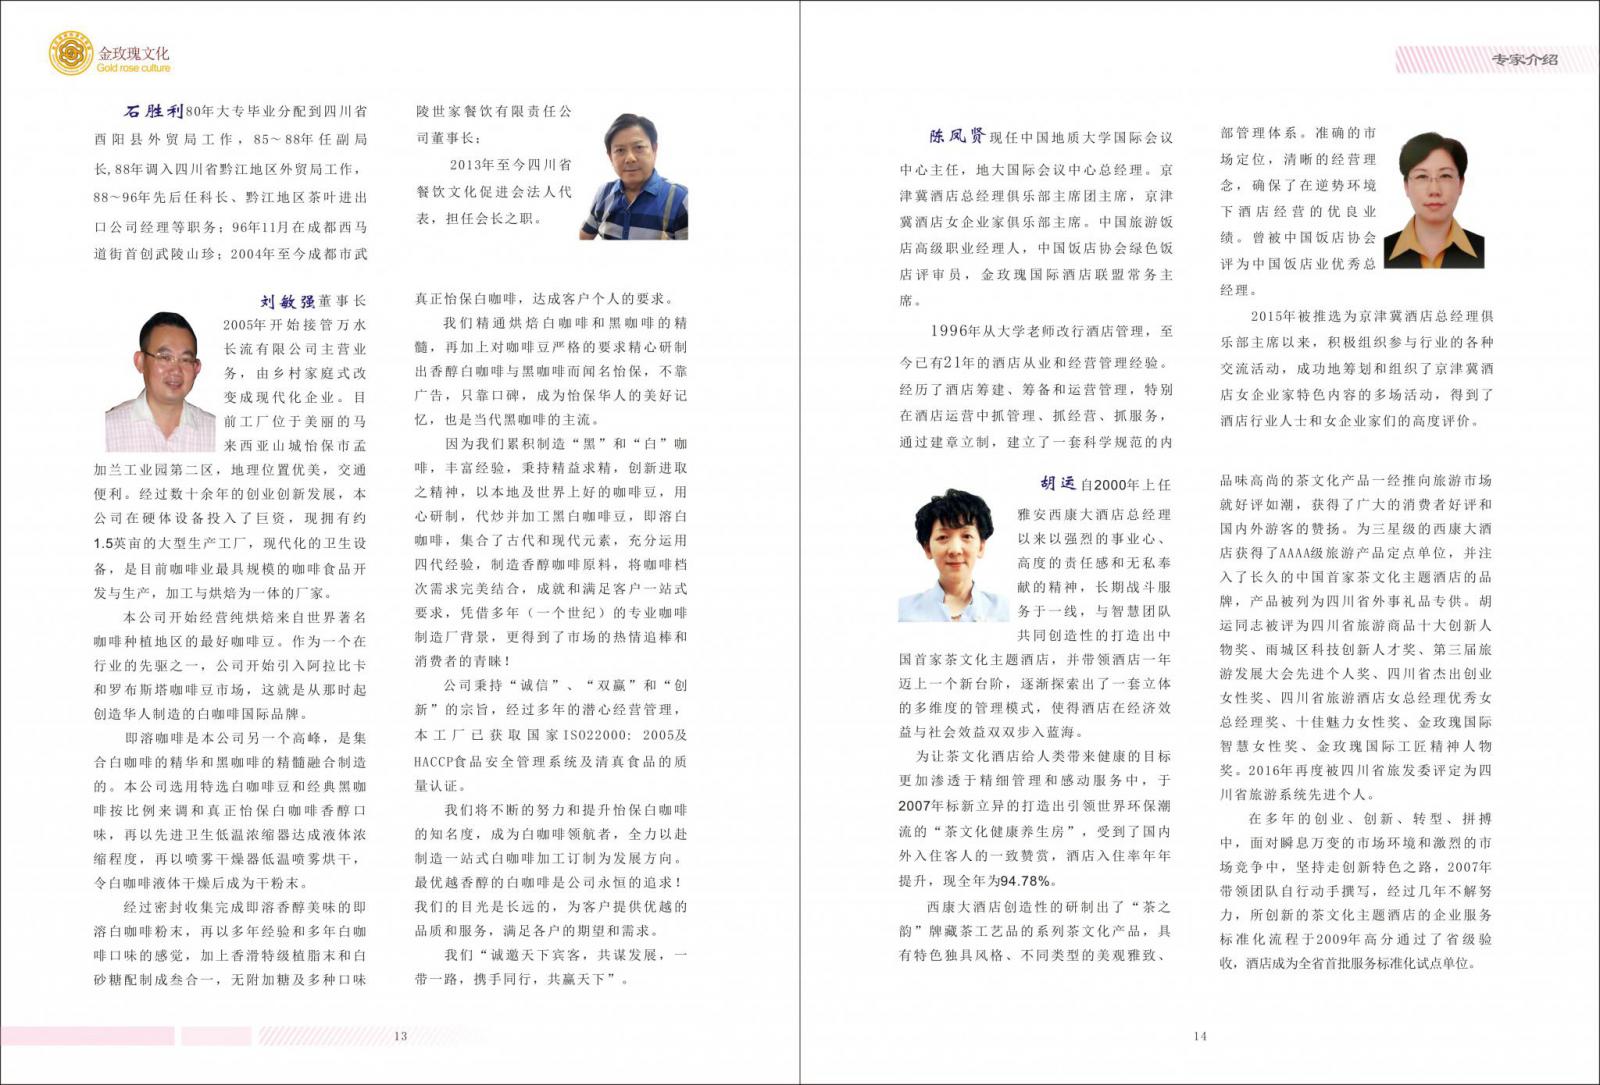 金玫瑰文化
Gold rose culture
石胜利80年大专毕业分配到四川省
酉阳县外贸局工作，85～88年任副局
长,88年调入四川省黔江地区外贸局工作，
88～96年先后任科长、黔江地区茶叶进出
口公司经理等职务；96年11月在成都西马
道街首创武陵山珍；2004年至今成都市武
陵世家餐饮有限责任公
司董事长；
2013年至今四川省
餐饮文化促进会法人代
表，担任会长之职。
刘敏强董事长
2005年开始接管万水
长流有限公司主营业
务，由乡村家庭式改
变成现代化企业。目
前工厂位于美丽的马
来西亚山城怡保市孟
加兰工业园第二区，地理位置优美，交通
便利。经过数十余年的创业创新发展，本
公司在硬体设备投入了巨资，现拥有约
1.5英亩的大型生产工厂，现代化的卫生设
备，是目前咖啡业最具规模的咖啡食品开
发与生产，加工与烘焙为一体的厂家。
本公司开始经营纯烘焙来自世界著名
咖啡种植地区的最好咖啡豆。作为一个在
行业的先驱之一，公司开始引入阿拉比卡
和罗布斯塔咖啡豆市场，这就是从那时起
创造华人制造的白咖啡国际品牌。
即溶咖啡是本公司另一个高峰，是集
合白咖啡的精华和黑咖啡的精髓融合制造
的。本公司选用特选白咖啡豆和经典黑咖
啡按比例来调和真正怡保白咖啡香醇口
味，再以先进卫生低温浓缩器达成液体浓
缩程度，再以喷雾干燥器低温喷雾烘干，
令白咖啡液体干燥后成为干粉末。
经过密封收集完成即溶香醇美味的即
溶白咖啡粉末，再以多年经验和多年白咖
啡口味的感觉，加上香滑特级植脂末和白
砂糖配制成叁合一，无附加糖及多种口味
真正怡保白咖啡，达成客户个人的要求。
我们精通烘焙白咖啡和黑咖啡的精
髓，再加上对咖啡豆严格的要求精心研制
出香醇白咖啡与黑咖啡而闻名怡保，不靠
广告，只靠口碑，成为怡保华人的美好记
忆，也是当代黑咖啡的主流。
因为我们累积制造“黑”和“白”咖
啡，丰富经验，秉持精益求精，创新进取
之精神，以本地及世界上好的咖啡豆，用
心研制，代炒并加工黑白咖啡豆，即溶白
咖啡，集合了古代和现代元素，充分运用
四代经验，制造香醇咖啡原料，将咖啡档
次需求完美结合，成就和满足客户一站式
要求，凭借多年（一个世纪）的专业咖啡
制造厂背景，更得到了市场的热情追棒和
消费者的青睐！
公司秉持“诚信”、“双赢”和“创
新”的宗旨，经过多年的潜心经营管理，
本工厂已获取国家ISO22000：2005及
HACCP食品安全管理系统及清真食品的质
量认证。
我们将不断的努力和提升怡保白咖啡
的知名度，成为白咖啡领航者，全力以赴
制造一站式白咖啡加工订制为发展方向。
最优越香醇的白咖啡是公司永恒的追求！
我们的目光是长远的，为客户提供优越的
品质和服务，满足各户的期望和需求。
我们“诚邀天下宾客，共谋发展，一
带一路，携手同行，共赢天下”。
13
专家介绍
陈凤贤现任中国地质大学国际会议
中心主任，地大国际会议中心总经理。京
津冀酒店总经理俱乐部主席团主席，京津
冀酒店女企业家俱乐部主席。中国旅游饭
店高级职业经理人，中国饭店协会绿色饭
店评审员，金玫瑰国际酒店联盟常务主
席。
1996年从大学老师改行酒店管理，至
今已有21年的酒店从业和经营管理经验。
经历了酒店筹建、筹备和运营管理，特别
在酒店运营中抓管理、抓经营、抓服务，
通过建章立制，建立了一套科学规范的内
部管理体系。准确的市
场定位，清晰的经营理
念，确保了在逆势环境
下酒店经营的优良业
绩。曾被中国饭店协会
评为中国饭店业优秀总
经理。
2015年被推选为京津冀酒店总经理俱
乐部主席以来，积极组织参与行业的各种
交流活动，成功地筹划和组织了京津冀酒
店女企业家特色内容的多场活动，得到了
酒店行业人士和女企业家们的高度评价。
胡运自2000年上任
雅安西康大酒店总经理
以来以强烈的事业心、
高度的责任感和无私奉
献的精神，长期战斗服
务于一线，与智慧团队
共同创造性的打造出中
国首家茶文化主题酒店，并带领酒店一年
迈上一个新台阶，逐渐探索出了一套立体
的多维度的管理模式，使得酒店在经济效
益与社会效益双双步入蓝海。
为让茶文化酒店给人类带来健康的目标
更加渗透于精细管理和感动服务中，于
2007年标新立异的打造出引领世界环保潮
流的“茶文化健康养生房”，受到了国内
外入住客人的一致赞赏，酒店入住率年年
提升，现全年为94.78%。
西康大酒店创造性的研制出了“茶之
韵”牌藏茶工艺品的系列茶文化产品，具
有特色独具风格、不同类型的美观雅致、
品味高尚的茶文化产品一经推向旅游市场
就好评如潮，获得了广大的消费者好评和
国内外游客的赞扬。为三星级的西康大酒
店获得了AAAA级旅游产品定点单位，并注
入了长久的中国首家茶文化主题酒店的品
牌，产品被列为四川省外事礼品专供。胡
运同志被评为四川省旅游商品十大创新人
物奖、雨城区科技创新人才奖、第三届旅
游发展大会先进个人奖、四川省杰出创业
女性奖、四川省旅游酒店女总经理优秀女
总经理奖、十佳魅力女性奖、金玫瑰国际
智慧女性奖、金玫瑰国际工匠精神人物
奖。2016年再度被四川省旅发委评定为四
川省旅游系统先进个人。
在多年的创业、创新、转型、拼搏
中，面对瞬息万变的市场环境和激烈的市
场竞争中，坚持走创新特色之路，2007年
带领团队自行动手撰写，经过几年不解努
力，所创新的茶文化主题酒店的企业服务
标准化流程于2009年高分通过了省级验
收，酒店成为全省首批服务标准化试点单位。
14